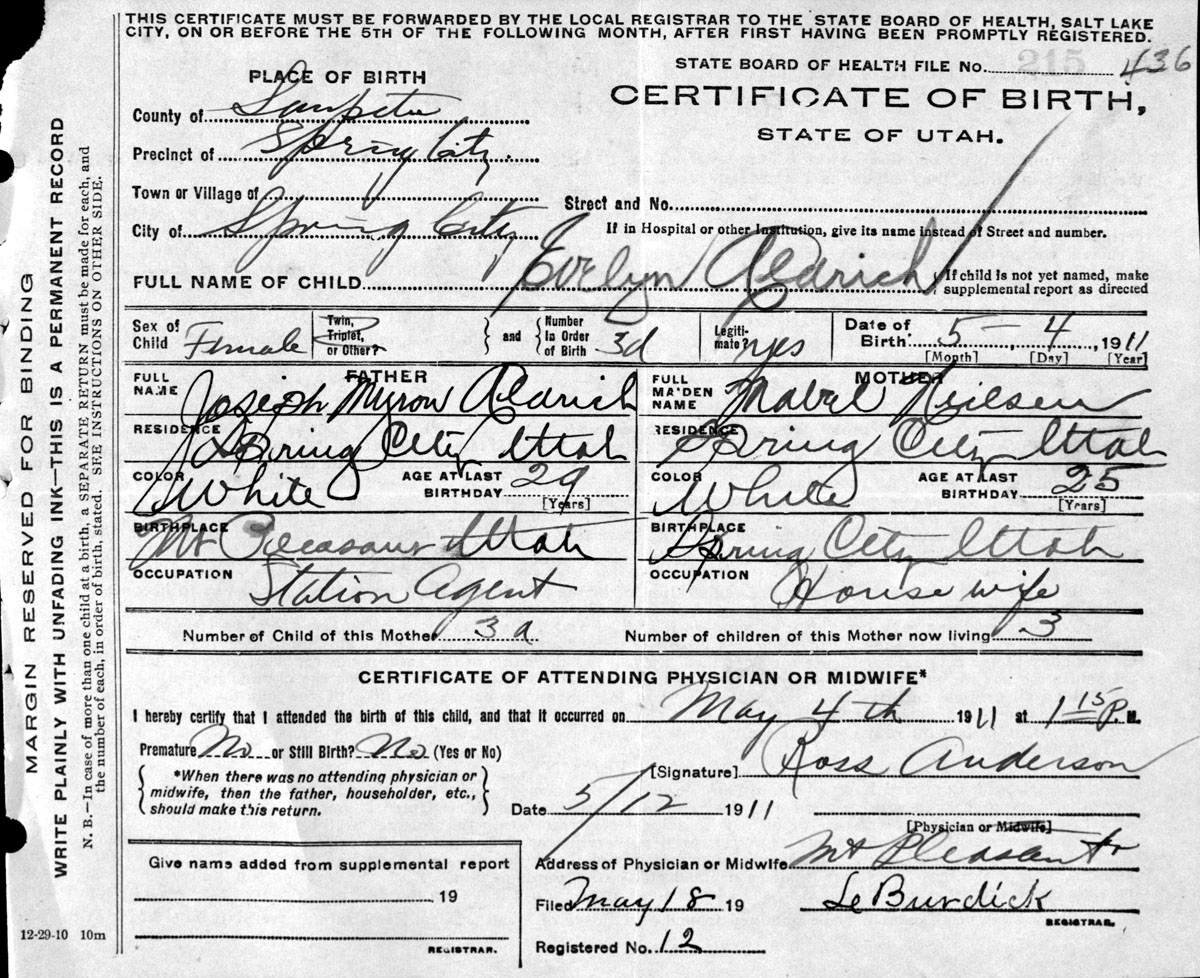 THIS CERTIFICATE MUST BE FORWARDED BY THE LOCAL REGISTRAR TO THE STATE BOARD OF HEALTH, SALT LAKE
CITY, ON OR BEFORE THE 5TH OF THE FOLLOWING MONTH, AFTER FIRST HAVING BEEN PROMPTLY REGISTERED.
STATE BOARD OF HEALTH FILE No. 215 436
PLACE OF BIRTH
CERTIFICATE OF BIRTH,
STATE OF UTAH.
County of Sanpete
Precinct of Spring City
Town or Village of
Street and No.
City of Spring City
If in Hospital or other Institution, give its name instead of Street and number.
FULL NAME OF CHILD Evelyn Aldrich
If child is not yet named, make
supplemental report as directed
Sex of Child Female
Twin, Triplet, or Other?
and
Number In Order of Birth 3d
Legitimate? yes
Date of Birth 5 - 4 1911
[Month] [Day] [Year]
FATHER
MOTHER
FULL NAME Joseph Myron Aldrich
FULL MAIDEN NAME Mabel Neilsen
RESIDENCE Spring City Utah
RESIDENCE Spring City Utah
COLOR White
AGE AT LAST BIRTHDAY 29
[Years]
COLOR White
AGE AT LAST BIRTHDAY 25
[Years]
BIRTHPLACE Mt Pleasant Utah
BIRTHPLACE Spring City Utah
OCCUPATION Station Agent
OCCUPATION House wife
Number of Child of this Mother 3d
Number of children of this Mother now living 3
CERTIFICATE OF ATTENDING PHYSICIAN OR MIDWIFE*
I hereby certify that I attended the birth of this child, and that it occurred on May 4th 1911 at 1 15 P. M.
Premature No or Still Birth? No (Yes or No)
*When there was no attending physician or
midwife, then the father, householder, etc.,
should make this return.
[Signature] Ross Anderson
Date 5/12 1911
[Physician or Midwife]
Address of Physician or Midwife Mt Pleasant
Give name added from supplemental report
19
REGISTRAR.
Filed May 18 19
Le Burdick
REGISTRAR.
Registered No. 12
12-29-10 10m
MARGIN RESERVED FOR BINDING
WRITE PLAINLY WITH UNFADING INK—THIS IS A PERMANENT RECORD
N. B.—In case of more than one child at a birth, a SEPARATE RETURN must be made for each, and
the number of each, in order of birth, stated. SEE INSTRUCTIONS ON OTHER SIDE.